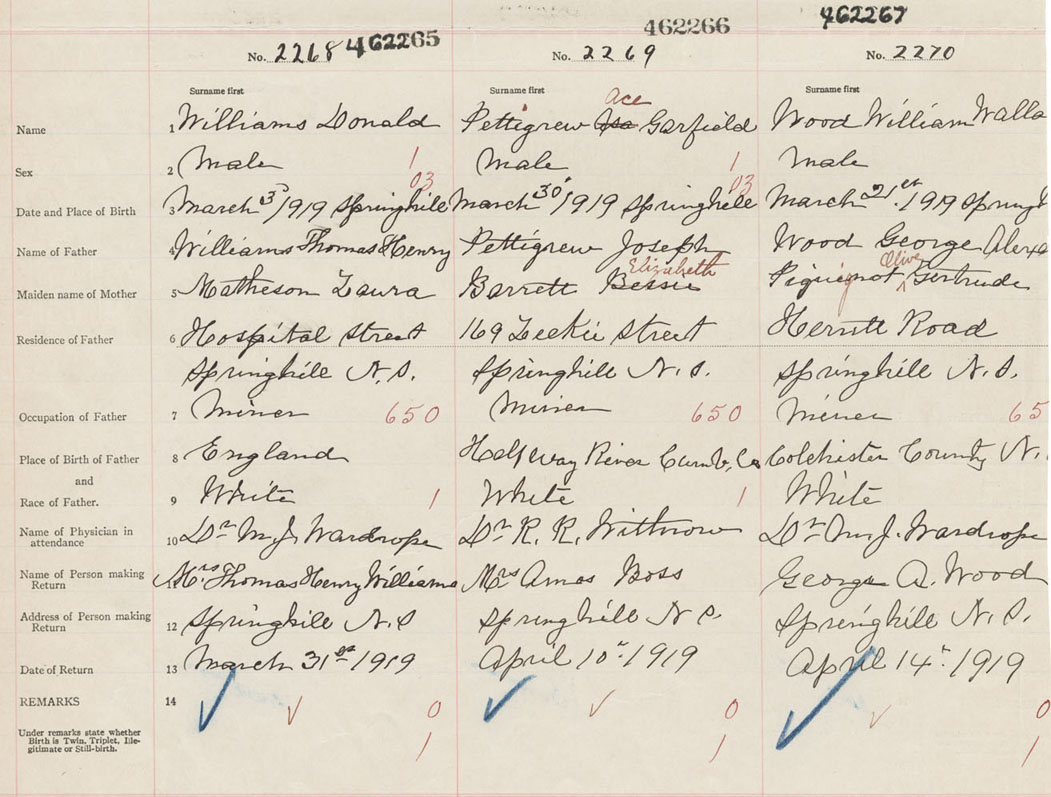 462265 462266 462267
No. 2268 No. 2269 No. 2270
Surname first Surname first Surname first
Ace
Name 1 Williams Donald Pettigrew Asa Garfield Wood William Walla
Sex 2 Male 1 Male 1 Male
03 03
Date and Place of Birth 3 March 3rd 1919 Springhill March 30th 1919 Springhill March 21st 1919 Spring
Name of Father 4 Williams Thomas Henry Pettigrew Joseph Wood George Alexa
Elizabeth Olive
Maiden name of Mother 5 Matheson Laura Barrett Bessie Gertrude
Residence of Father 6 Hospital Street 169 Leckie Street Herrett Road
Springhill N.S. Springhill N.S. Springhill N.S.
Occupation of Father 7 Miner 650 Miner 650 Miner 65
Place of Birth of Father 8 England Halfway River Cumb. Co Colchester County N.
and
Race of Father. 9 White 1 White 1 White
Name of Physician in
attendance 10 Dr M.J. Wardrope Dr R. R. Withrow Dr M.J. Wardrope
Name of Person making
Return 11 Mrs Thomas Henry Williams Mrs Amos Boss George A. Wood
Address of Person making
Return 12 Springhill N.S Springhill N S. Springhill N.S.
Date of Return 13 March 31st 1919 April 10th 1919 April 14th 1919
REMARKS 14 0 0 0
Under remarks state whether
Birth is Twin, Triplet, Ille-
gitimate or Still-birth. 1 1 1